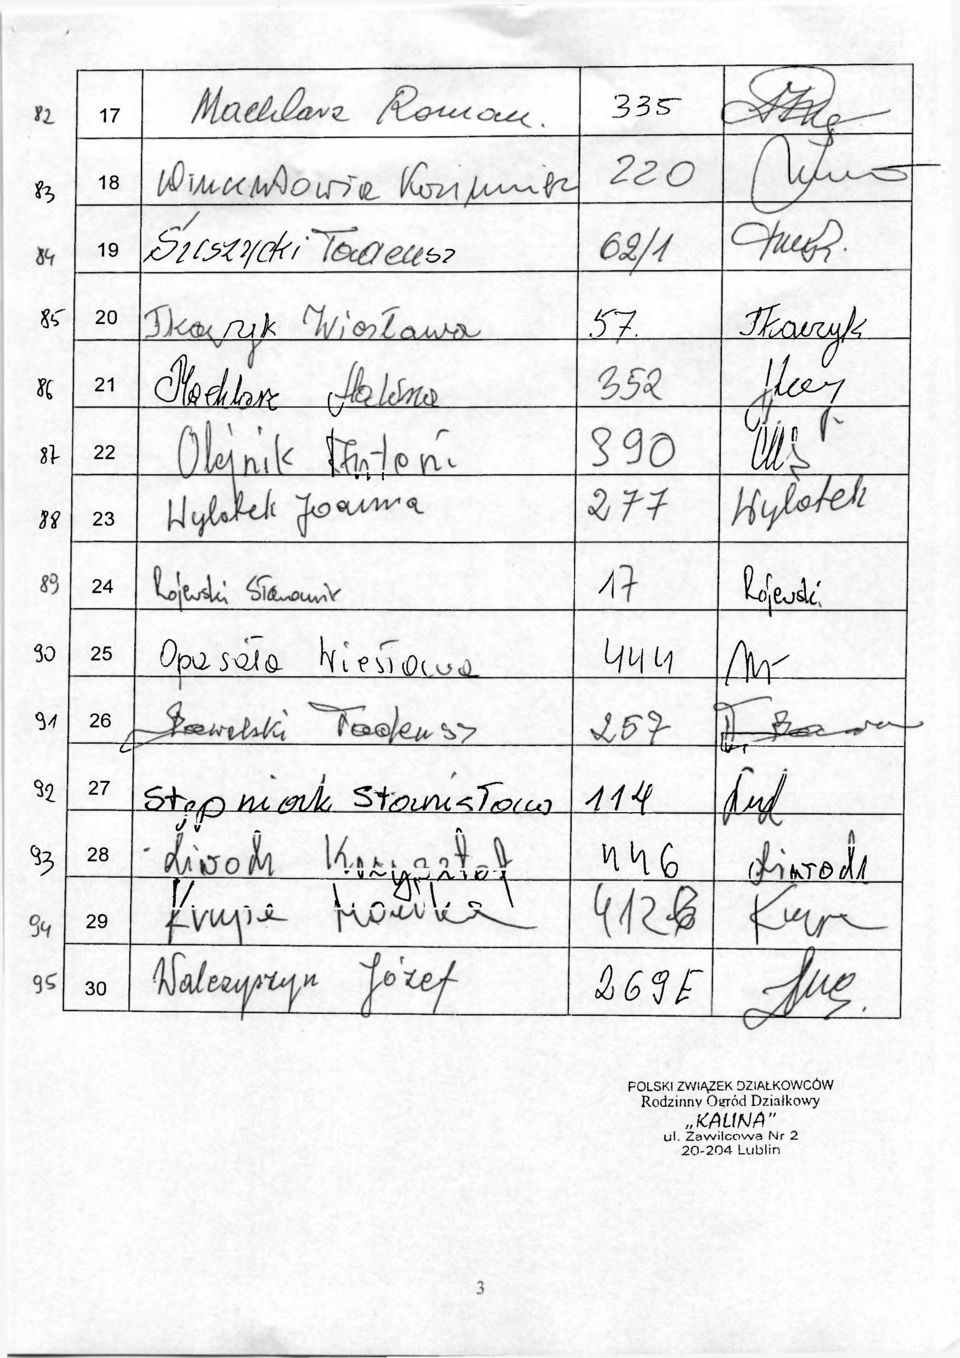 82 17 Machlarz Roman. 335
83 18 220
84 19 Tadeusz 62/1
85 20 Tkaczyk Wiesława 57. Tkaczyk
86 21 Machlarz Halina 352
87 22 Olejnik Antoni 390
88 23 Wylotek Joanna 277 Wylotek
89 24 Rojewski 17 Rojewski
90 25 Opasała Wiesława 444
91 26 Tadeusz 257
92 27 Stępniak Stanisława 114
93 28 Liwoch Krzysztof 446 Liwoch
94 29 Krupa 412
95 30 Walczyszyn Józef 269E
POLSKI ZWIĄZEK DZIAŁKOWCÓW
Rodzinny Ogród Działkowy
„KALINA"
ul. Zawilcowa Nr 2
20-204 Lublin
3